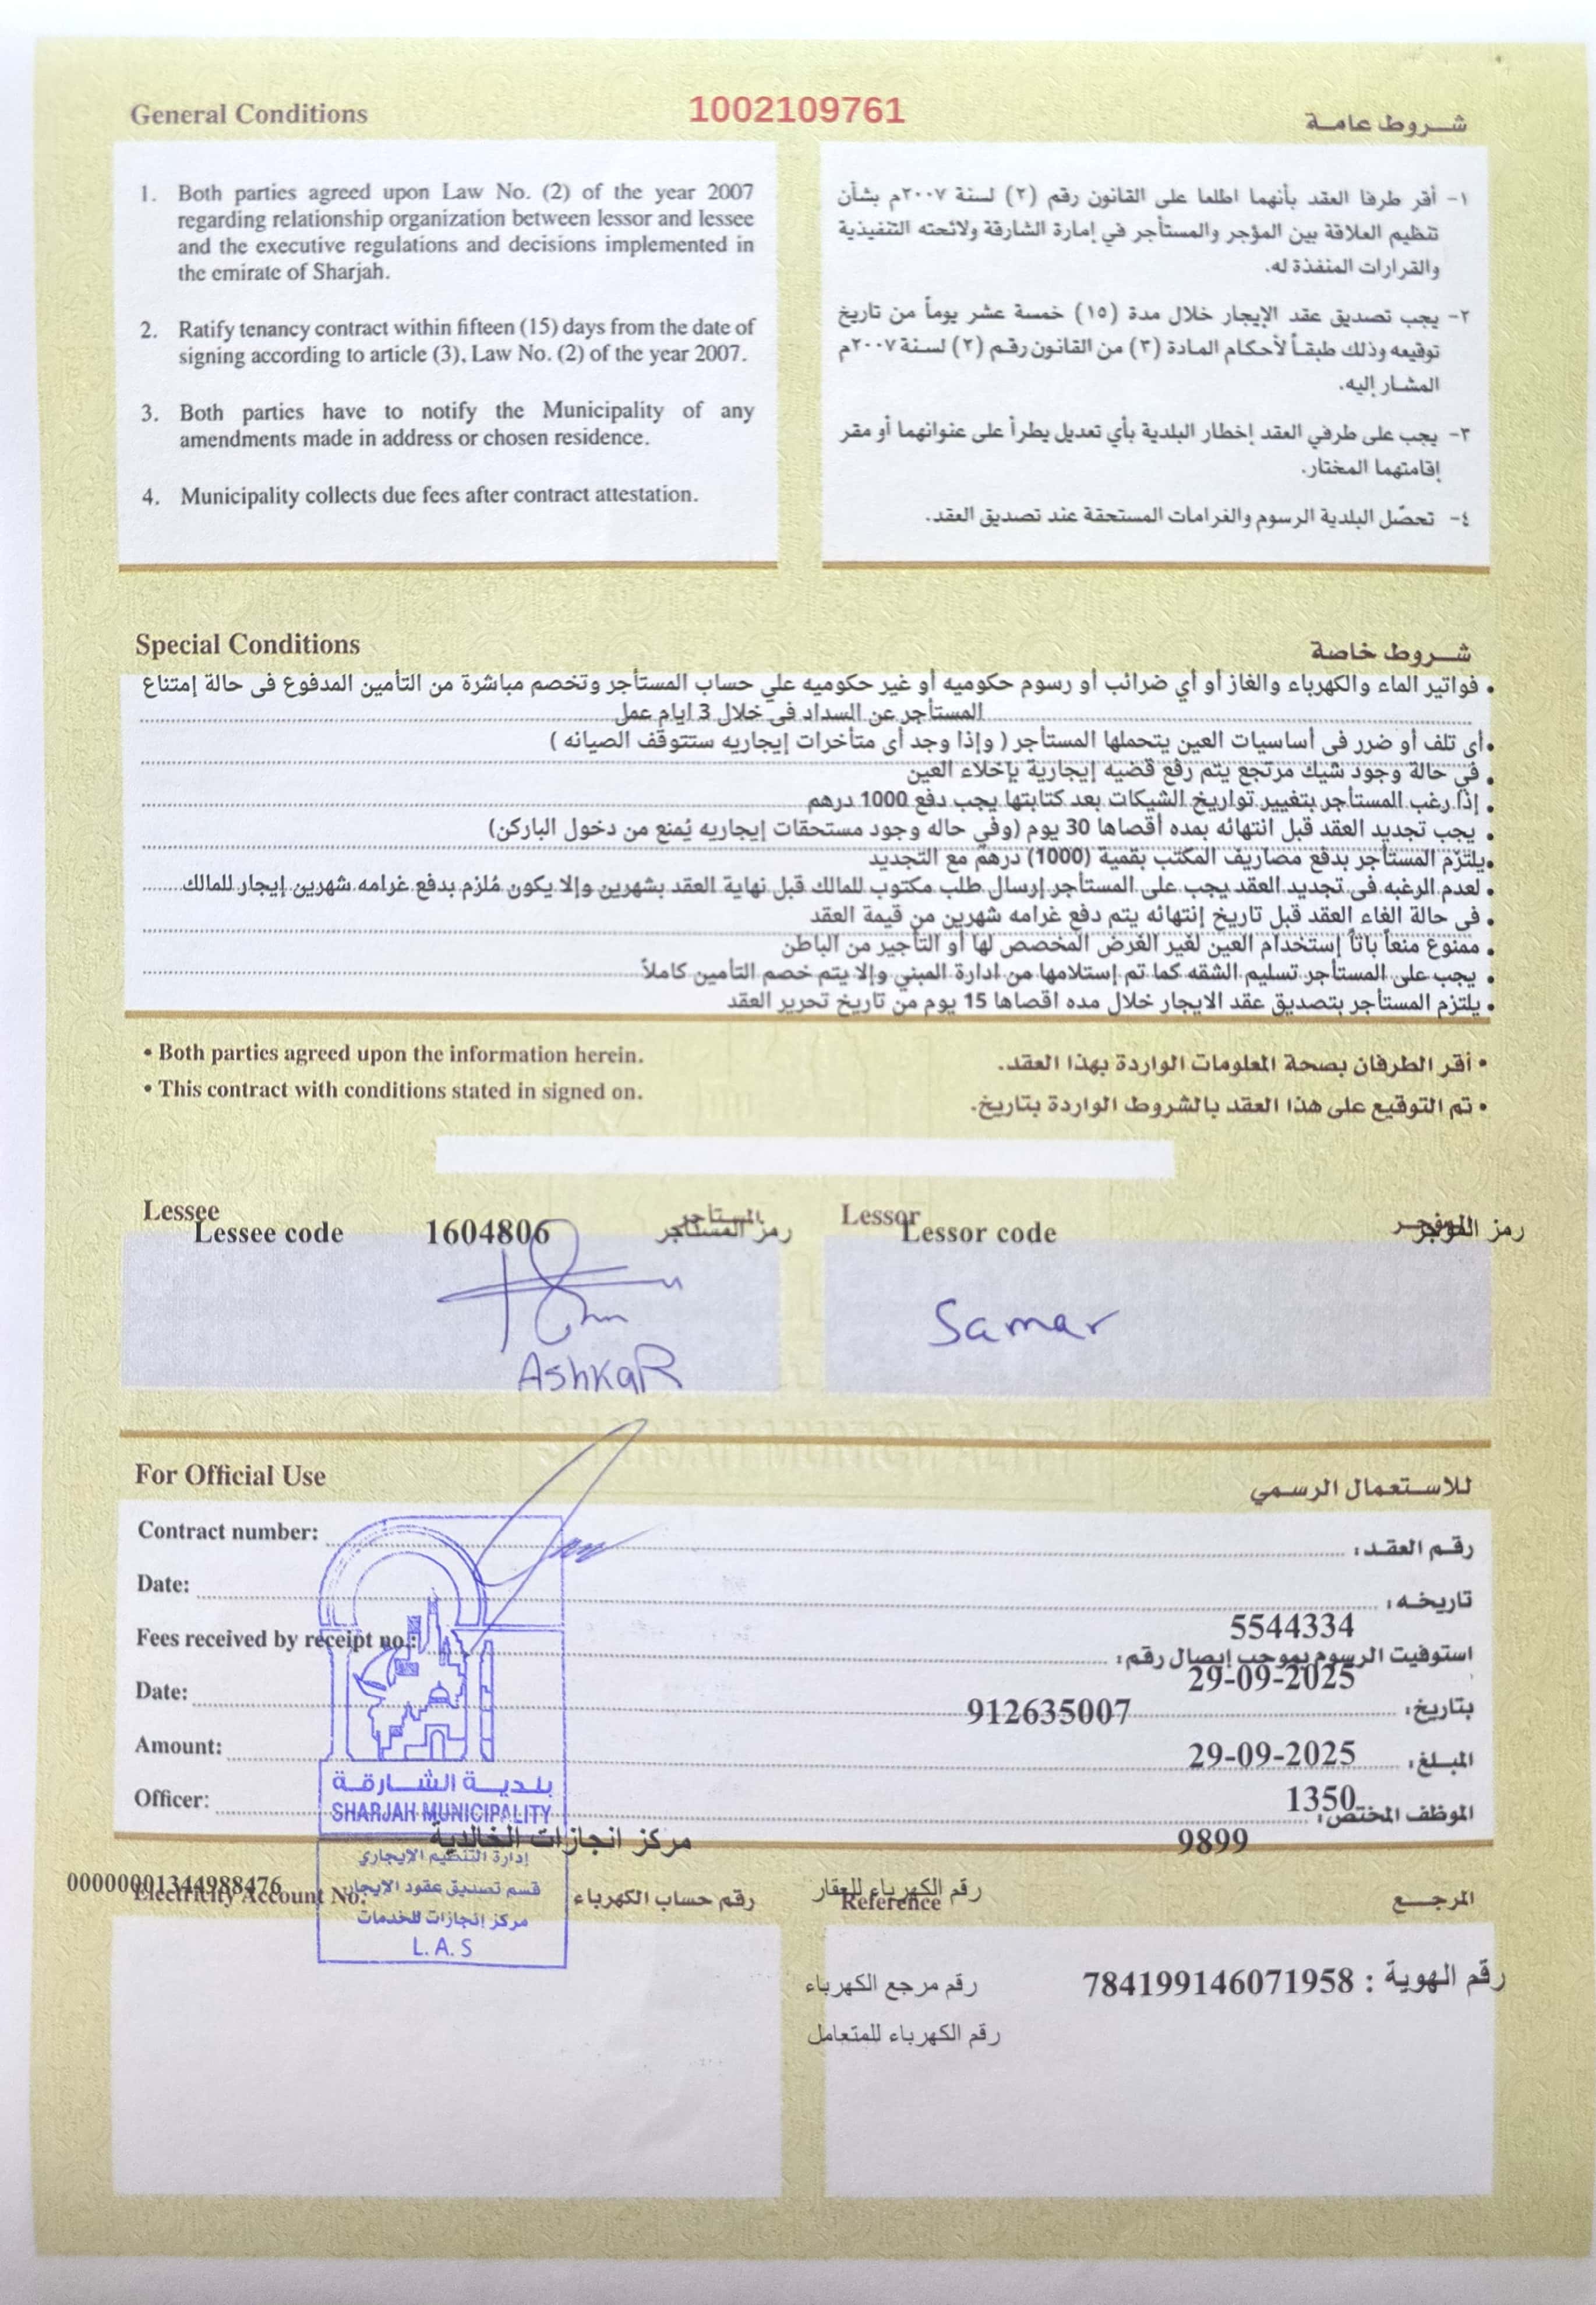 General Conditions
1002109761
شروط عامة
1. Both parties agreed upon Law No. (2) of the year 2007
regarding relationship organization between lessor and lessee
and the executive regulations and decisions implemented in
the emirate of Sharjah.
2. Ratify tenancy contract within fifteen (15) days from the date of
signing according to article (3), Law No. (2) of the year 2007.
3. Both parties have to notify the Municipality of any
amendments made in address or chosen residence.
4. Municipality collects due fees after contract attestation.
١- أقر طرفا العقد بأنهما اطلعا على القانون رقم (٢) لسنة ٢٠٠٧م بشأن
تنظيم العلاقة بين المؤجر والمستأجر في إمارة الشارقة ولائحته التنفيذية
والقرارات المنفذة له.
٢- يجب تصديق عقد الإيجار خلال مدة (١٥) خمسة عشر يوماً من تاريخ
توقيعه وذلك طبقاً لأحكام المادة (٣) من القانون رقم (٢) لسنة ٢٠٠٧م
المشار إليه.
٣- يجب على طرفي العقد إخطار البلدية بأي تعديل يطرأ على عنوانهما أو مقر
إقامتهما المختار.
٤- تحصّل البلدية الرسوم والغرامات المستحقة عند تصديق العقد.
Special Conditions
شروط خاصة
• فواتير الماء والكهرباء والغاز أو أي ضرائب أو رسوم حكوميه أو غير حكوميه علي حساب المستأجر وتخصم مباشرة من التأمين المدفوع فى حالة إمتناع
المستأجر عن السداد فى خلال 3 ايام عمل
• أى تلف أو ضرر فى أساسيات العين يتحملها المستأجر ( وإذا وجد أى متأخرات إيجاريه ستتوقف الصيانه )
• في حالة وجود شيك مرتجع يتم رفع قضيه إيجارية بإخلاء العين
• إذا رغب المستأجر بتغيير تواريخ الشيكات بعد كتابتها يجب دفع 1000 درهم
• يجب تجديد العقد قبل انتهائه بمده أقصاها 30 يوم (وفي حاله وجود مستحقات إيجاريه يُمنع من دخول الباركن)
• يلتزم المستأجر بدفع مصاريف المكتب بقمية (1000) درهم مع التجديد
• لعدم الرغبه فى تجديد العقد يجب على المستأجر إرسال طلب مكتوب للمالك قبل نهاية العقد بشهرين وإلا يكون مُلزم بدفع غرامه شهرين إيجار للمالك
• فى حالة الغاء العقد قبل تاريخ إنتهائه يتم دفع غرامه شهرين من قيمة العقد
• ممنوع منعاً باتاً إستخدام العين لغير الغرض المخصص لها أو التأجير من الباطن
• يجب على المستأجر تسليم الشقه كما تم إستلامها من ادارة المبني وإلا يتم خصم التأمين كاملاً
• يلتزم المستأجر بتصديق عقد الايجار خلال مده اقصاها 15 يوم من تاريخ تحرير العقد
• Both parties agreed upon the information herein.
• This contract with conditions stated in signed on.
• أقر الطرفان بصحة المعلومات الواردة بهذا العقد.
• تم التوقيع على هذا العقد بالشروط الواردة بتاريخ.
Lessee
المستأجر
Lessee code 1604806 رمز المستأجر
Lessor
المؤجر
Lessor code رمز المؤجر
AshkaR
Samar
For Official Use
للاستعمال الرسمي
Contract number: رقم العقد:
Date: تاريخه:
5544334
Fees received by receipt no.: استوفيت الرسوم بموجب إيصال رقم:
29-09-2025
Date: 912635007 بتاريخ:
Amount: 29-09-2025 المبلغ:
1350
Officer: الموظف المختص:
9899
بلدية الشارقة
SHARJAH MUNICIPALITY
مركز انجازات الخالدية
إدارة التنظيم الايجاري
قسم تصديق عقود الايجار
مركز إنجازات للخدمات
L.A.S
00000001344988476
Electricity Account No: رقم حساب الكهرباء
رقم الكهرباء للعقار
Reference المرجع
رقم الهوية : 784199146071958
رقم مرجع الكهرباء
رقم الكهرباء للمتعامل